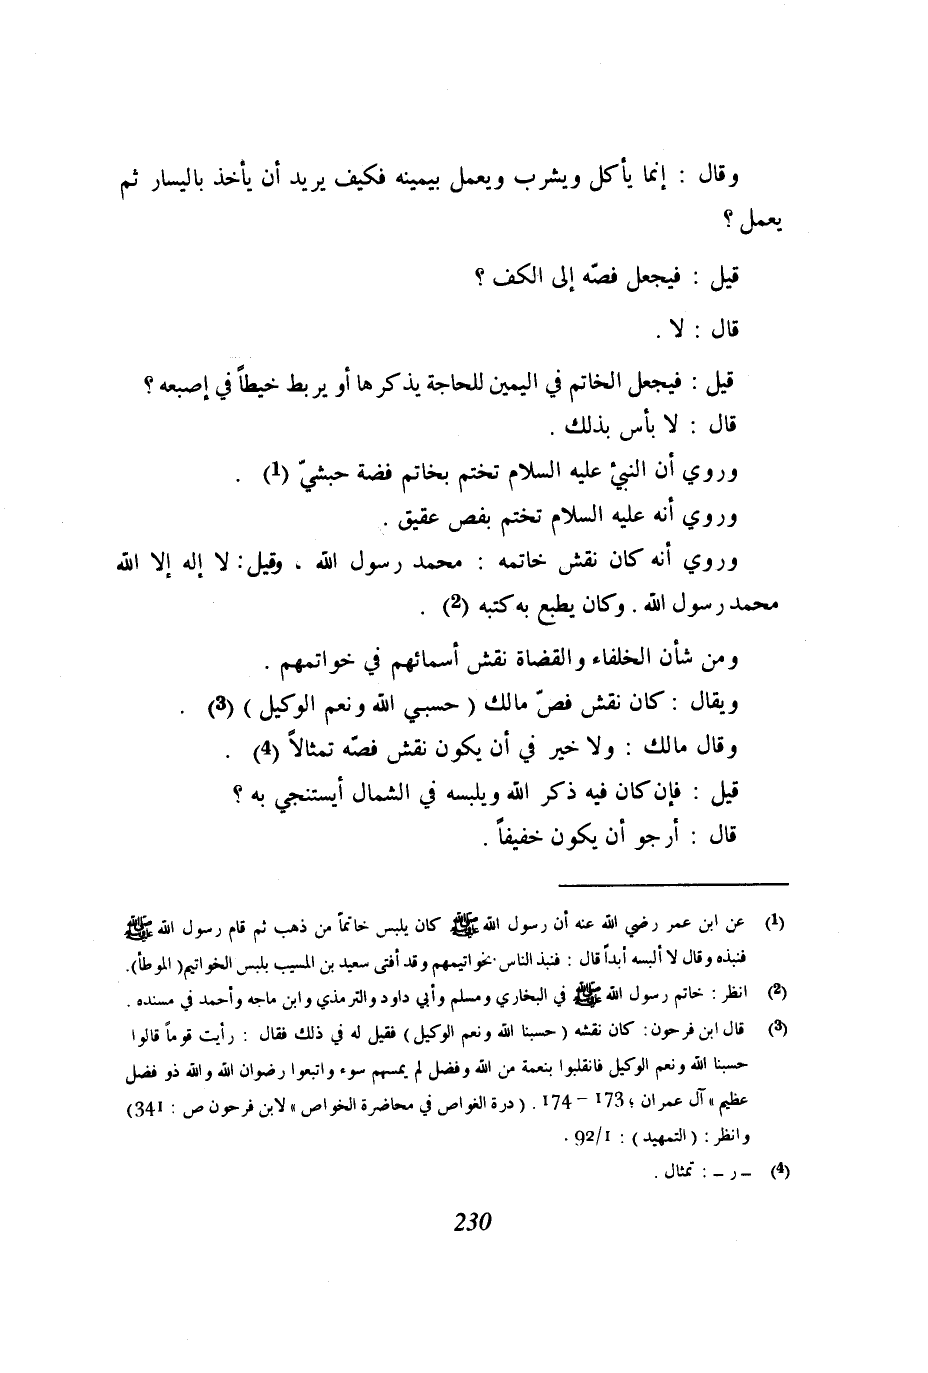 وقال : إنما يأكل ويشرب ويعمل بيمينه فكيف يريد أن يأخذ باليسار ثم
يعمل ؟
قيل : فيجعل فصّه إلى الكف ؟
قال : لا .
قيل : فيجعل الخاتم في اليمين للحاجة يذكرها أو يربط خيطاً في إصبعه ؟
قال : لا بأس بذلك .
وروي أن النبيّ عليه السلام تختم بخاتم فضة حبشيّ (1) .
وروي أنه عليه السلام تختم بفص عقيق .
وروي أنه كان نقش خاتمه : محمد رسول الله ، وقيل : لا إله إلا الله
محمد رسول الله . وكان يطبع به كتبه (2) .
ومن شأن الخلفاء والقضاة نقش أسمائهم في خواتمهم .
ويقال : كان نقش فصّ مالك ( حسبي الله ونعم الوكيل ) (3) .
وقال مالك : ولا خير في أن يكون نقش فصّه تمثالاً (4) .
قيل : فإن كان فيه ذكر الله ويلبسه في الشمال أيستنجي به ؟
قال : أرجو أن يكون خفيفاً .
(1) عن ابن عمر رضي الله عنه أن رسول الله ﷺ كان يلبس خاتماً من ذهب ثم قام رسول الله ﷺ
فنبذه وقال لا ألبسه أبداً قال : فنبذ الناس بخواتيمهم وقد أفتى سعيد بن المسيب بلبس الخواتيم ( الموطأ ).
(2) انظر : خاتم رسول الله ﷺ في البخاري ومسلم وأبي داود والترمذي وابن ماجه وأحمد في مسنده .
(3) قال ابن فرحون : كان نقشه ( حسبنا الله ونعم الوكيل ) فقيل له في ذلك فقال : رأيت قوماً قالوا
حسبنا الله ونعم الوكيل فانقلبوا بنعمة من الله وفضل لم يمسهم سوء واتبعوا رضوان الله والله ذو فضل
عظيم » آل عمران ؛ 173 – 174 . ( درة الغواص في محاضرة الخواص » لابن فرحون ص : 341)
وانظر : ( التمهيد ) : 92/1 .
(4) – ر – : تمثال .
230